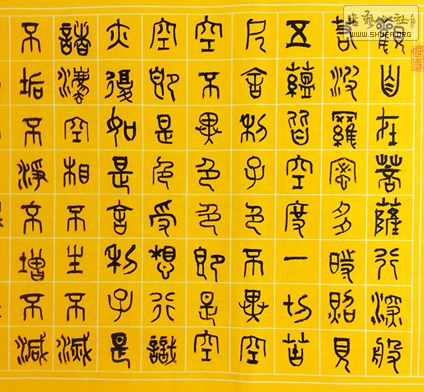 觀自在菩薩行深般
若波羅蜜多時照見
五蘊皆空度一切苦
厄舍利子色不異空
空不異色色即是空
空即是色受想行識
亦復如是舍利子是
諸灋空相不生不滅
不垢不淨不增不減